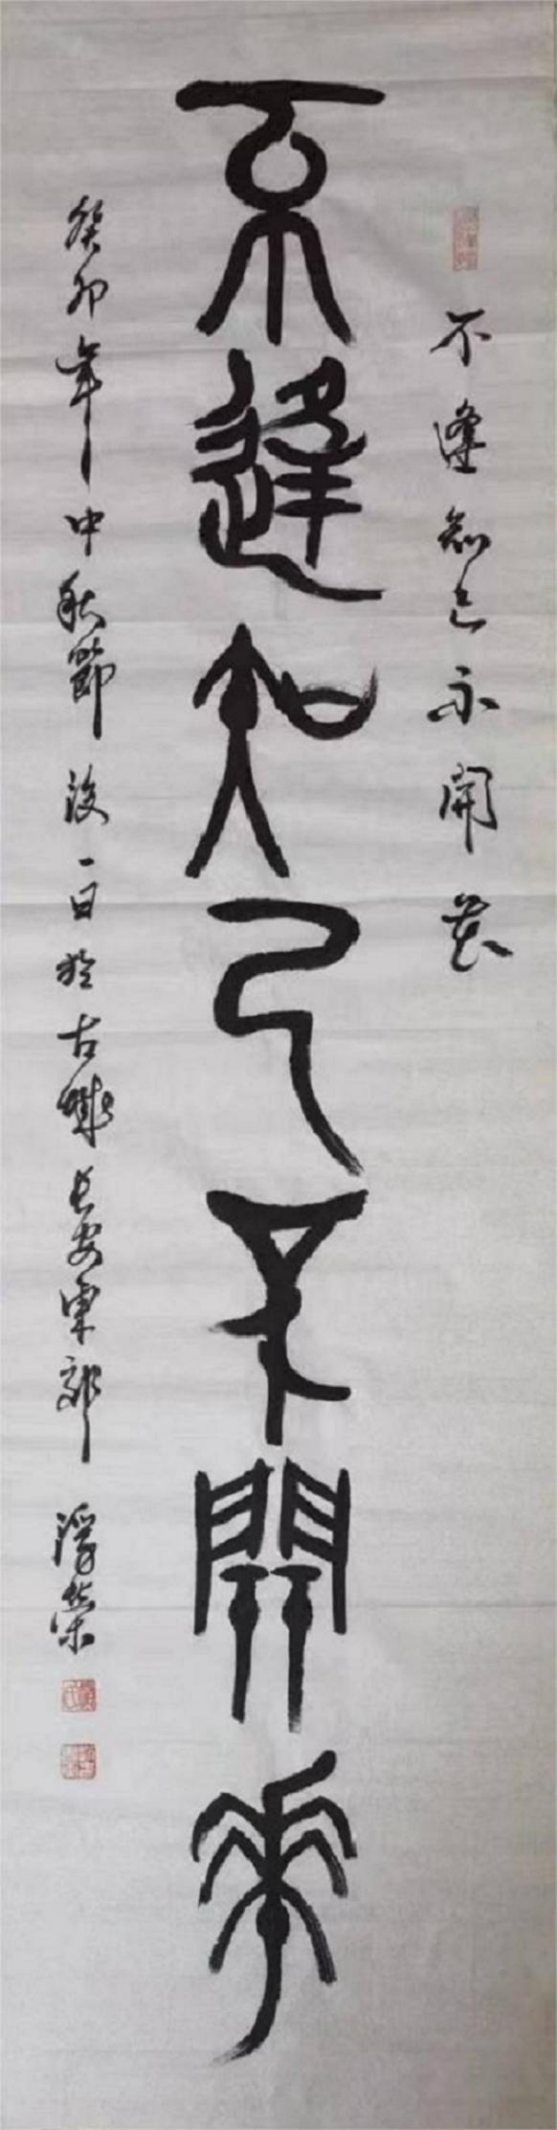 不逢知己不開花
不逢知己不開花
癸卯年中秋節後一日於古城長安東郊